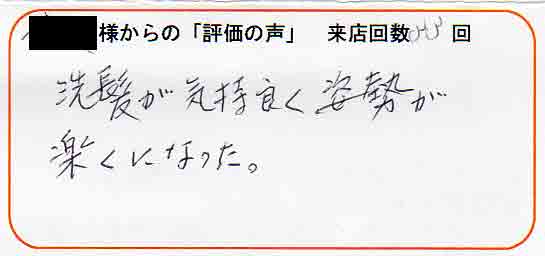 様からの「評価の声」 来店回数 回
洗髪が気持良く姿勢が
楽くになった。